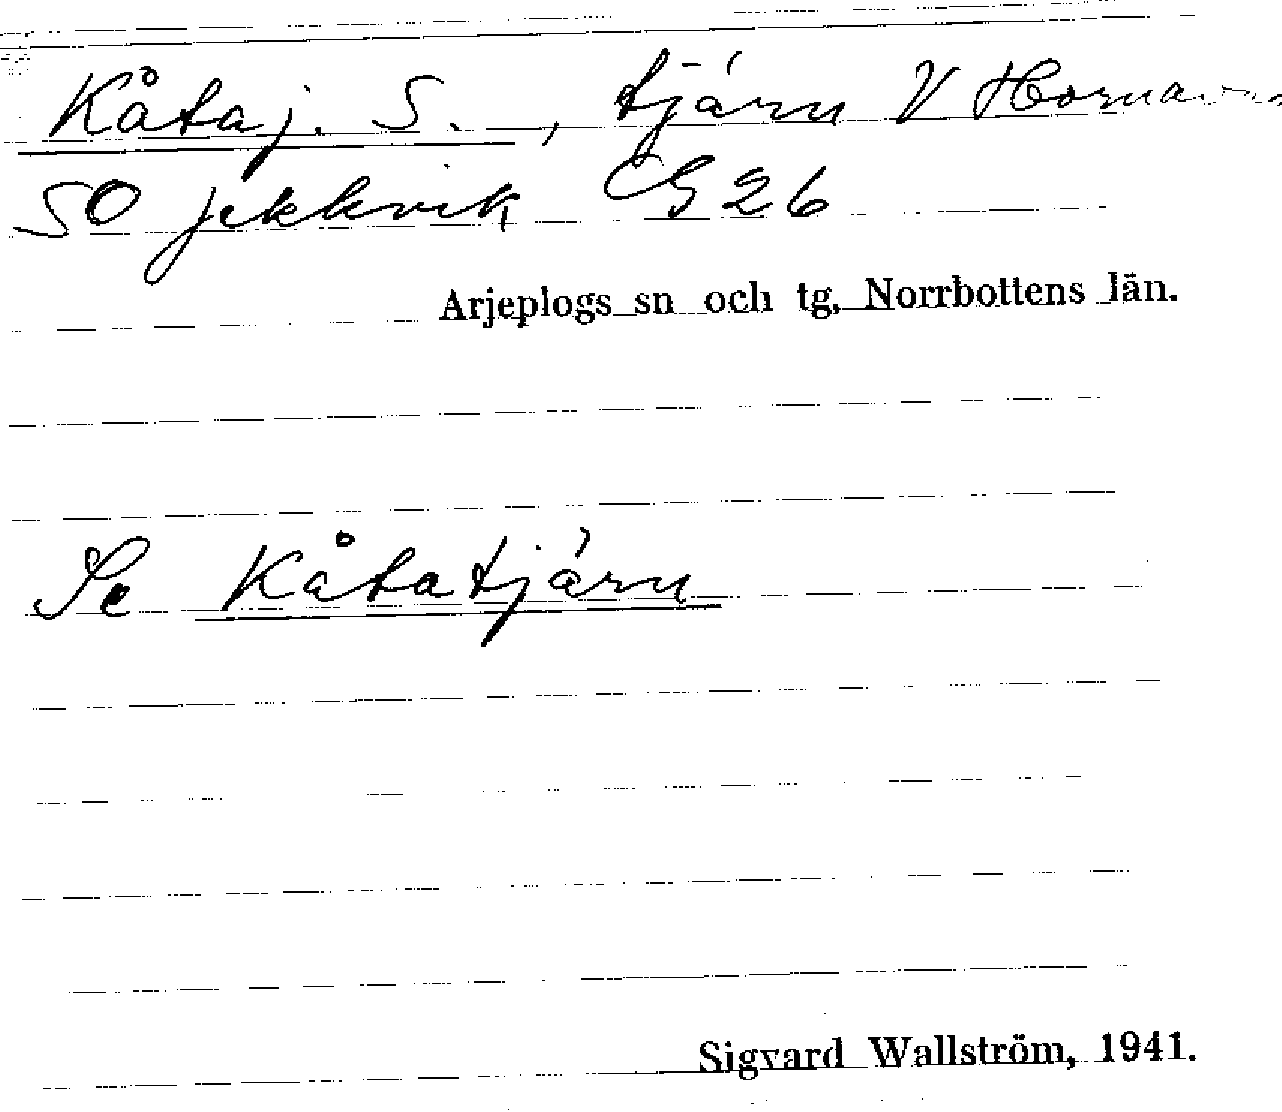 Kåtaj. S., tjärn V Hornavan
SO Jekkvik G 26
Arjeplogs sn och tg, Norrbottens län.
Se Kåtatjärn
Sigvard Wallström, 1941.